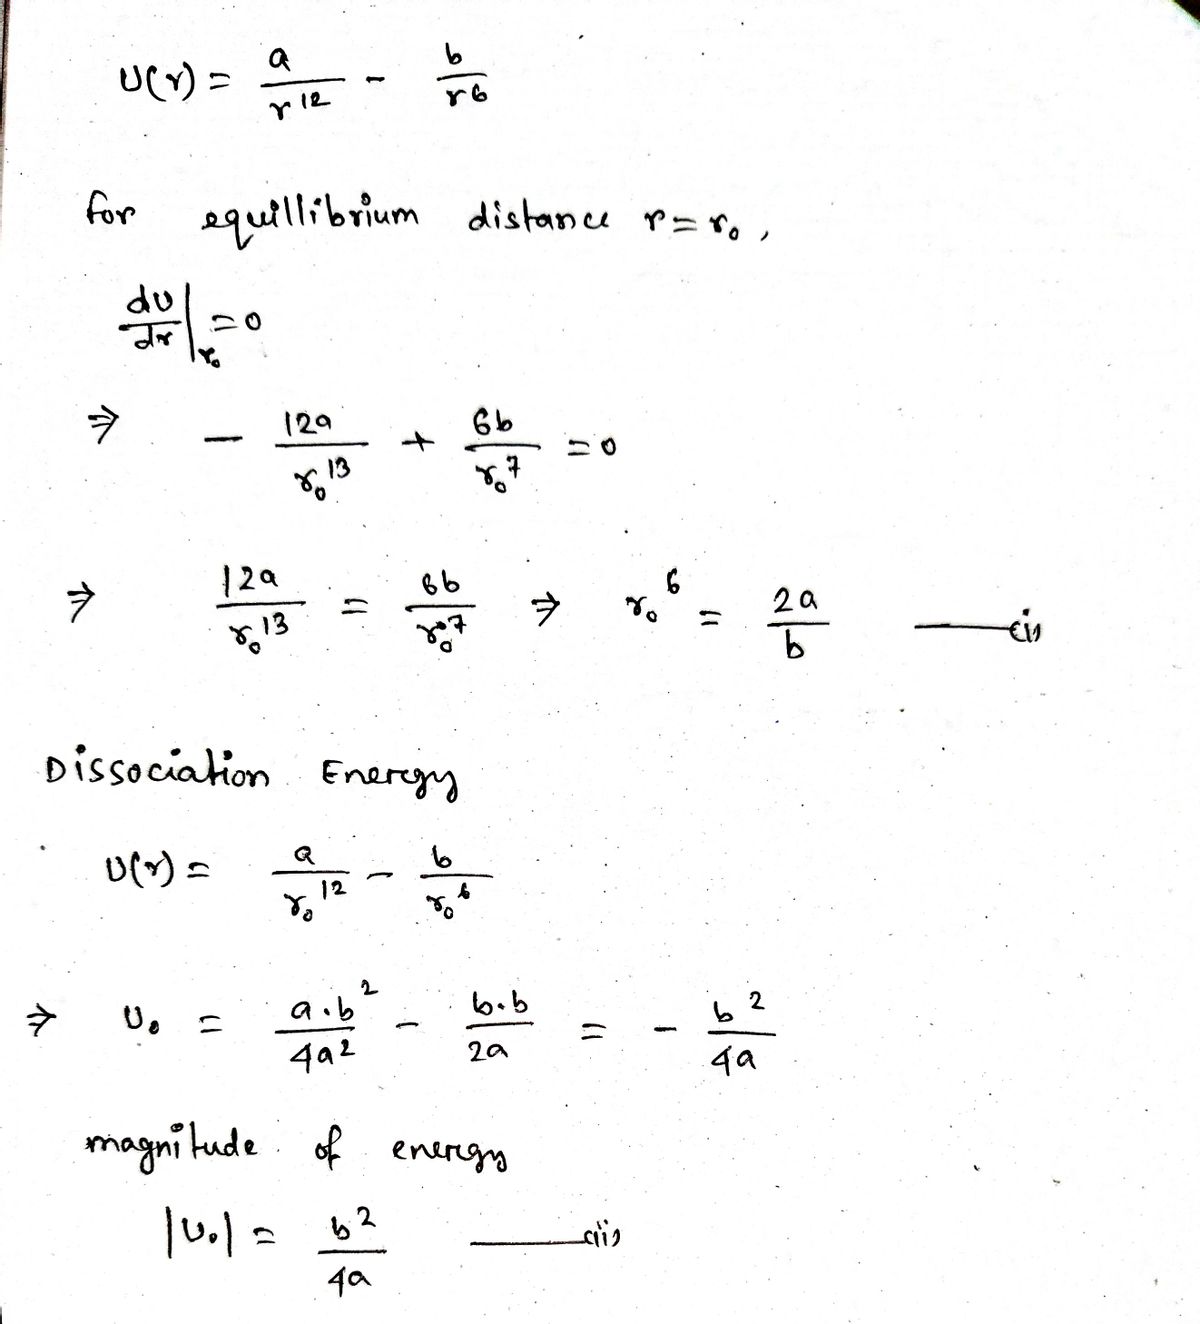 U(r) = a/r^12 - b/r^6
for equillibrium distance r = r₀,
dU/dr|r₀ = 0
⇒ - 12a/r₀^13 + 6b/r₀^7 = 0
⇒ 12a/r₀^13 = 6b/r₀^7 ⇒ r₀^6 = 2a/b ——(i)
Dissociation Energy
U(r) = a/r₀^12 - b/r₀^6
⇒ U₀ = a.b^2/4a^2 - b.b/2a = - b^2/4a
magnitude of energy
|U₀| = b^2/4a ——(ii)